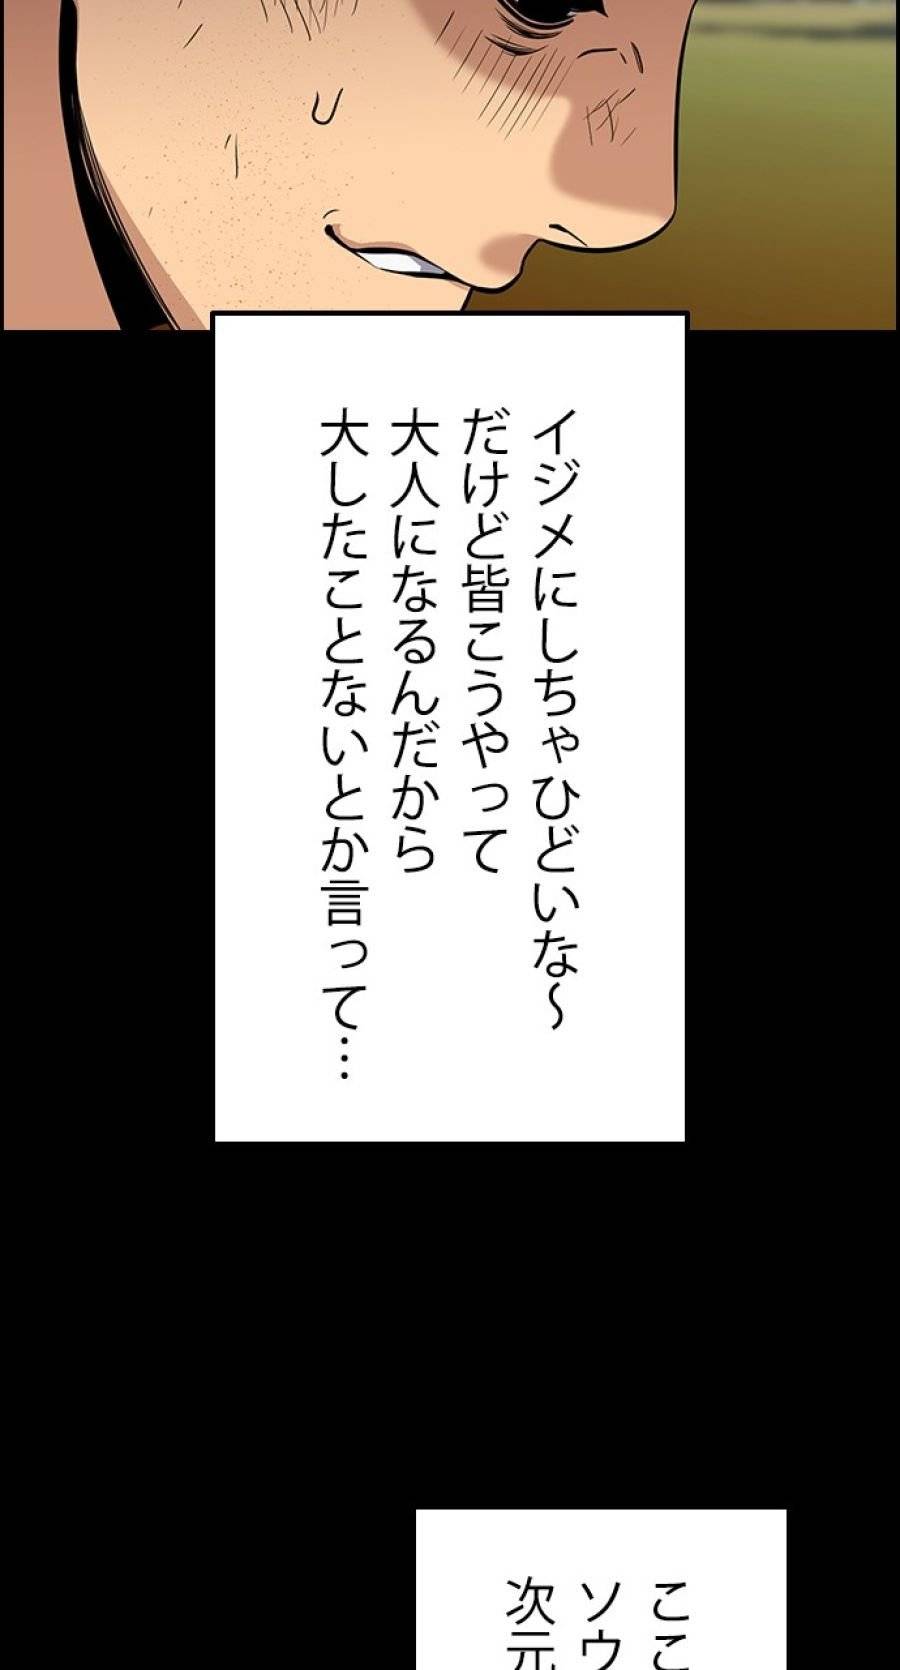 イジメにしちゃひどいな〜
だけど皆こうやって
大人になるんだから
大したことないとか言って…
ここ
ソウ
次元